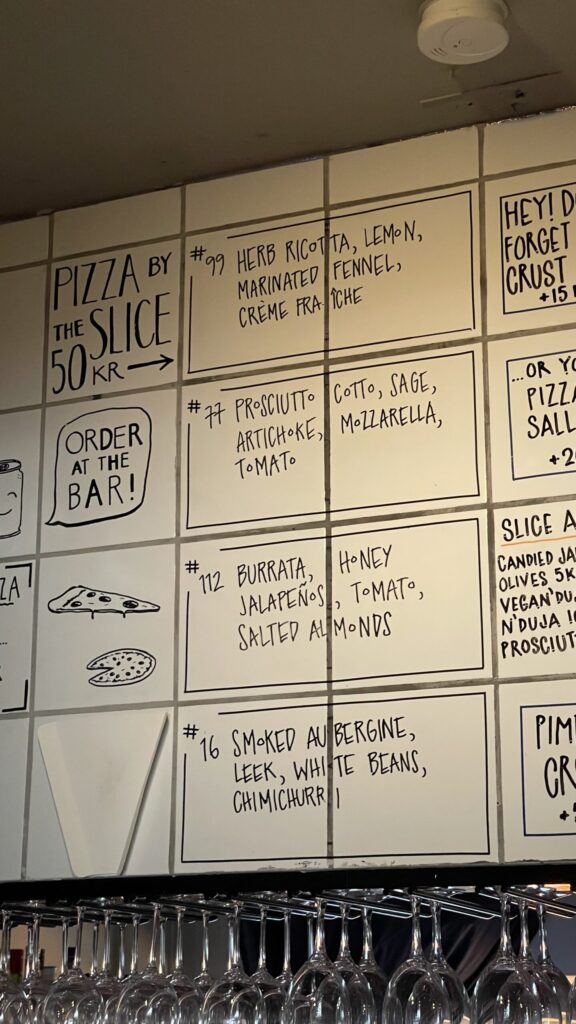 PIZZA BY
THE SLICE
50 KR
ORDER
AT THE
BAR!
ZA
#99 HERB RICOTTA, LEMON,
MARINATED FENNEL,
CRÈME FRAÎCHE
#77 PROSCIUTTO COTTO, SAGE,
ARTICHOKE, MOZZARELLA,
TOMATO
#112 BURRATA, HONEY
JALAPEÑOS, TOMATO,
SALTED ALMONDS
#16 SMOKED AUBERGINE,
LEEK, WHITE BEANS,
CHIMICHURRI
HEY! D
FORGET
CRUST
+15
...OR YO
PIZZA
SALL
+2
SLICE A
CANDIED JA
OLIVES 5K
VEGAN'DU
N'DUJA 10
PROSCIUT
PIM
CR